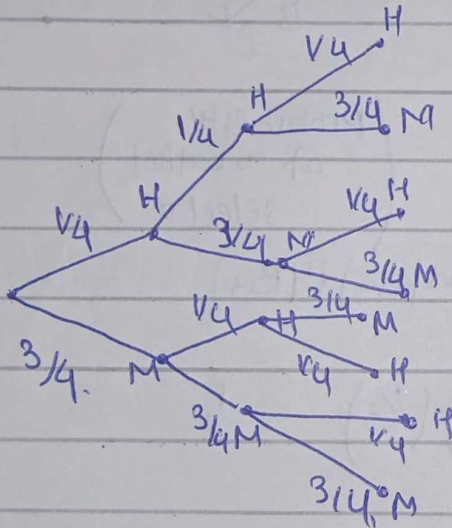 1/4 H
H 3/4 M
1/4
H 1/4 H
1/4 3/4 M
3/4 M
1/4 H 3/4 M
3/4 M 1/4 H
3/4 M 1/4 H
3/4 M